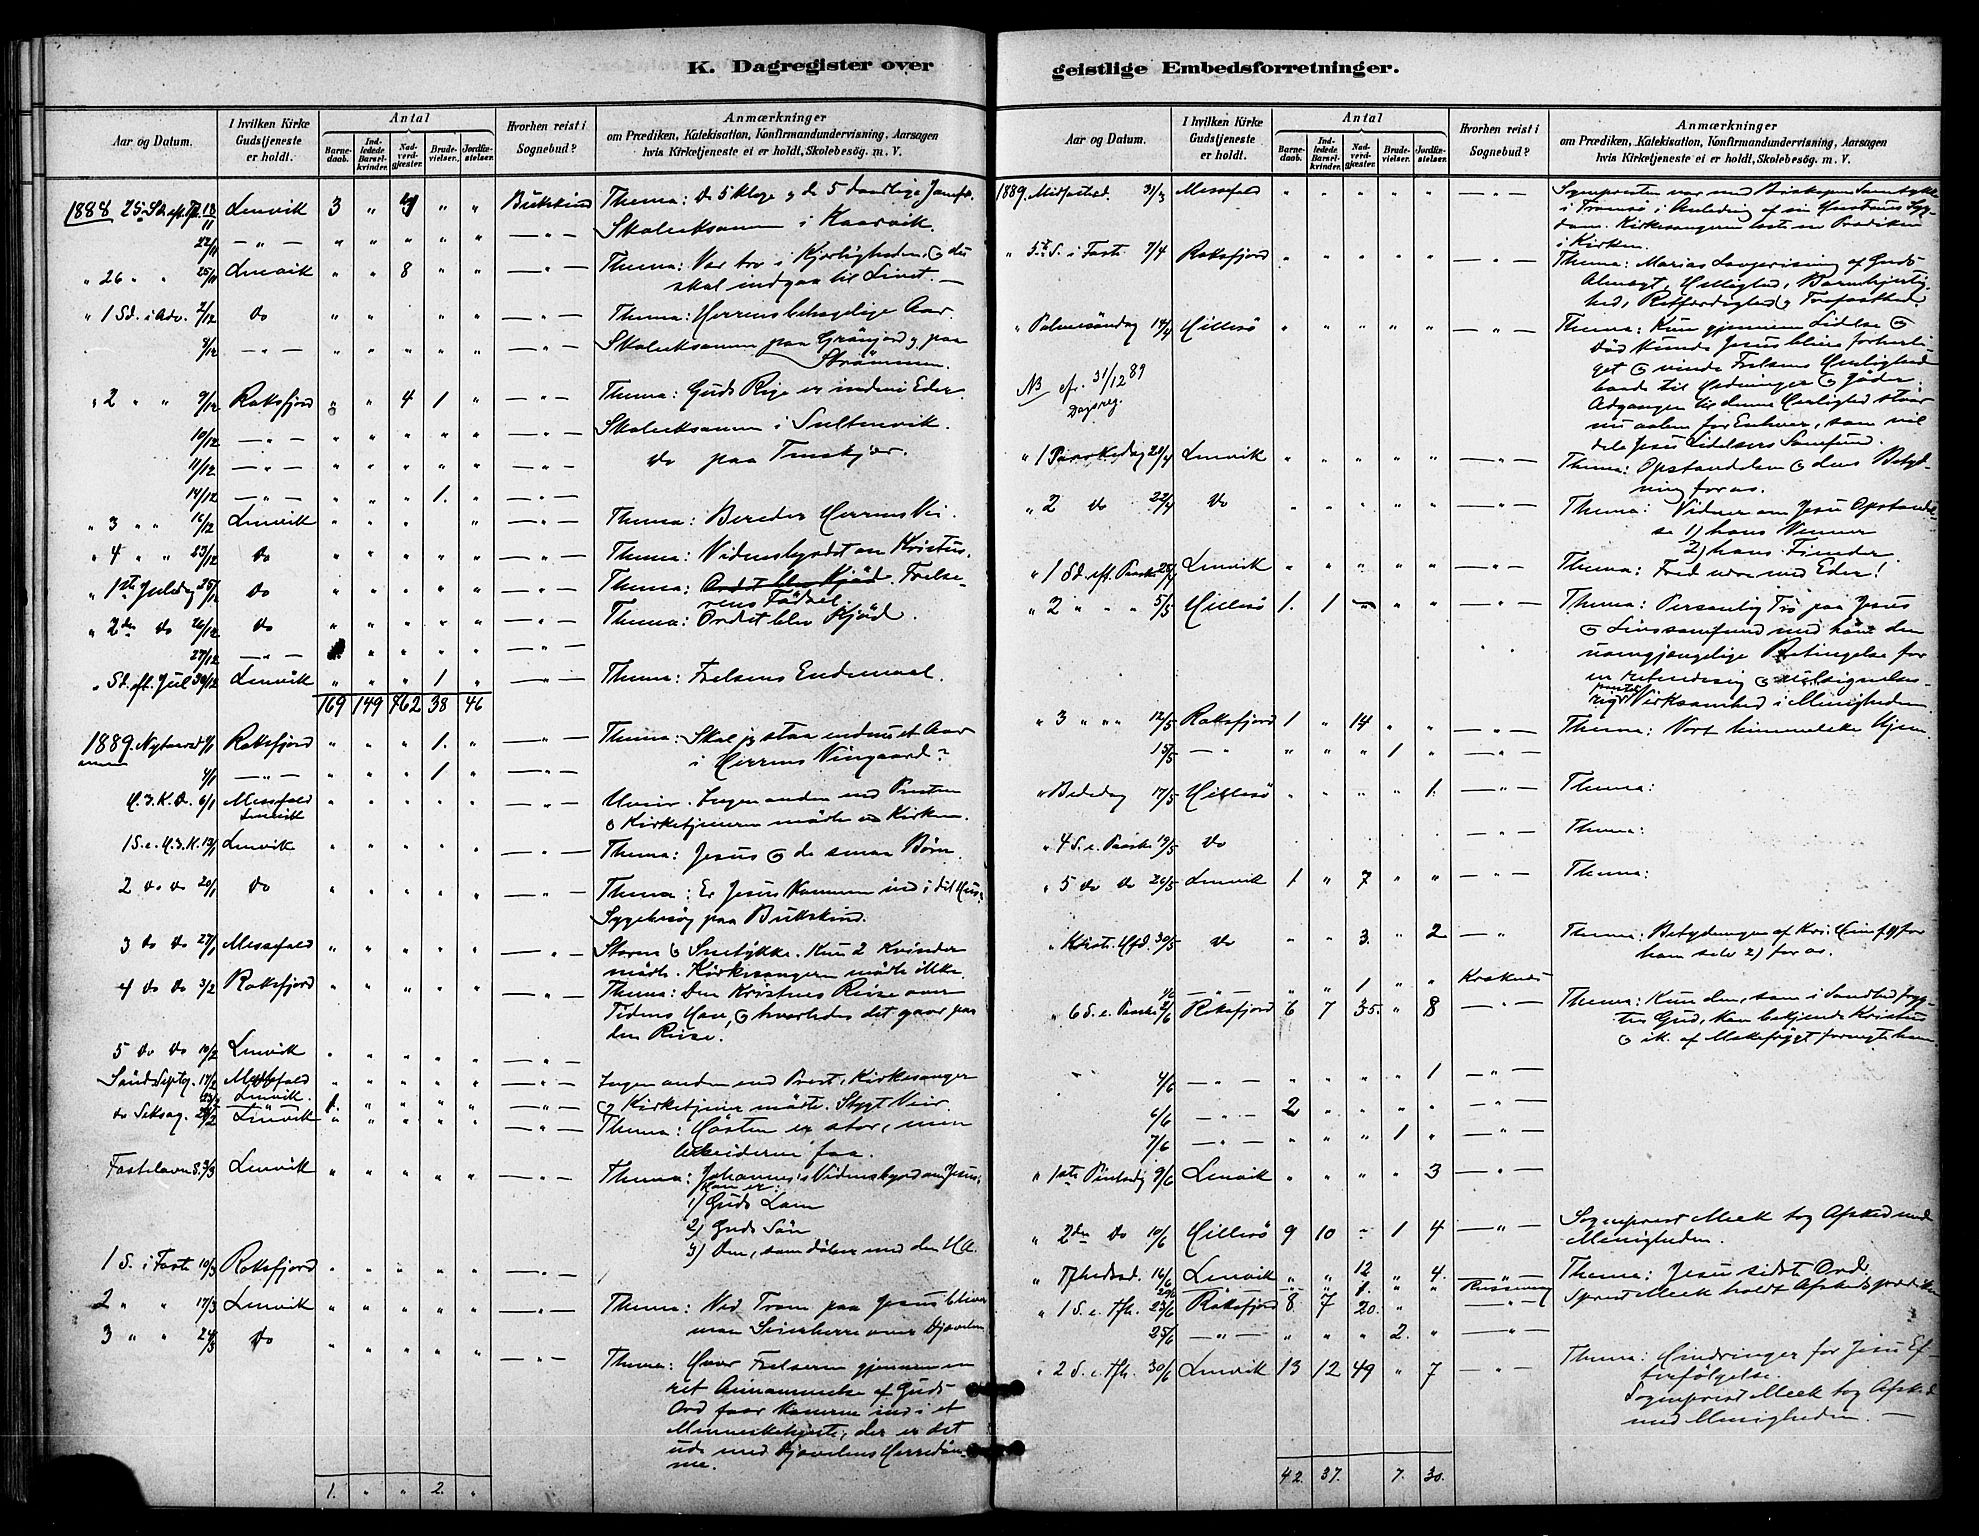 K. Dagregister over geistlige Embedsforretninger.
Aar og Datum.
I hvilken Kirke Gudstjeneste er holdt.
Antal
Barnedaab.
Indledede Barselkvinder.
Nadverdgjester.
Brudevielser.
Jordfæstelser.
Hvorhen reist i Sognebud?
Anmærkninger
om Prædiken, Katekisation, Konfirmandundervisning, Aarsagen
hvis Kirketjeneste ei er holdt, Skolebesög. m. V.
1888 25. S. eft. Tr. 18/11 Lenvik 3 " " " Bukskind Thema: De 5 kloge og de 5 daarlige Jomfr.
22/11 — " — " " " " " — " — Skoleeksamen i Kaarvik.
" 26 " " 25/11 Lenvik " " 8 " " — " — Thema: Vor tro i Kjærligheden, & du
skal indgaa til Livet. —
" 1 Sd. i Adv. 2/12 do " " " " — " — Thema: Herrens behagelige Aar.
3/12 — " — " " " " " — " — Skoleeksamen paa Grönjord og paa
Strömmen.
" 2 " " 9/12 Roksfjord " " 4 1 " — " — Thema: Guds Rige er indeni Eder.
10/12 — " — " " " " " — " — Skoleeksamen i Sultenvik.
11/12 — " — " " " " " — " — do paa Tenskjær.
14/12 — " — " " " 1. " — " —
" 3 " " 16/12 Lenvik " " " " — " — Thema: Bereder Herrens Vei.
" 4 " " 23/12 do " " " " " — " — Thema: Vidnesbyrdet om Kristus.
" 1ste Juledag 25/12 do " " " " " — " — Thema: Ordet blev Kjöd. Frelse-
rens Födsel.
" 2den do 26/12 do " " " " " — " — Thema: Ordet blev Kjöd.
27/12 — " — " " " " — " —
" Sd. eft. Jul 30/12 Lenvik " " " 1 " — " — Thema: Frelsens Endemaal.
169 149 462 38 46
1889. Nytaarsd. 1/1 Roksfjord " " " 1. " — " — Thema: Skal jeg staa endnu et Aar
i Herrens Vingaard?
4/1 — " — " " " 1 " — " —
H. 3. K. D. 6/1 Messefald Lenvik " " " " " — " — Uveir. Ingen anden end Presten
& Kirketjeneren mödte ved Kirken.
1 S. e. H. 3. K. 13/1 Lenvik " " " " " — " — Thema: Jesus & de smaa Börn.
2 do do 20/1 do " " " " " — " — Thema: Er Jesus kommen ind i dit Hus?
Sygebesög paa Bukskind.
3 do do 27/1 Messefald " " " " " — " — Storm & Snetykke. Kun 2 Kvinder
mödte. Kirkesangeren mödte ikke.
4 do do 3/2 Roksfjord " " " " " — " — Thema: Den Kristnes Reise over
Tidens Hav, & hvorledes det gaar paa
den Reise.
5 do do 10/2 Lenvik " " " " " — " —
Sönd. Septg. 17/2 Messefald " " " " " — " — Ingen anden end Prest, Kirkesanger
Lenvik 1. " " " " — " — og Kirketjener mödte. Stygt Veir.
do Seksag. 24/2 Lenvik " " " " " — " — Thema: Hösten er stor, men
Arbeiderne faa.
Fastelavns S. 3/3 Lenvik " " " " " — " — Thema: Johannes's Vidnesbyrd om Jesus:
Han er:
1) Guds Lam
2) Guds Sön
3) Den, som döber med den H. A.
1 S. i Faste 10/3 Roksfjord " " " " " — " —
2 " " 17/3 Lenvik " " " " " Thema: Ved Troen paa Jesus bliver
man Seierherre over Djævelen
3 " " 24/3 do " " " " " — " — Thema: Hvor Frelseren gjennem en
ret Annammelse af Guds
Ord faar komme ind i et
Menneskehjerte, der er det
ude med Djævelens Herredöm-
me.
1. " " 2. "
Aar og Datum.
I hvilken Kirke Gudstjeneste er holdt.
Antal
Barnedaab.
Indledede Barselkvinder.
Nadverdgjester.
Brudevielser.
Jordfæstelser.
Hvorhen reist i Sognebud?
Anmærkninger
om Prædiken, Katekisation, Konfirmandundervisning, Aarsagen
hvis Kirketjeneste ei er holdt, Skolebesög. m. V.
1889. Midfasted. 31/3 Messefald " " " " " — " — Sognepresten var med Biskopens Samtykke
i Tromsö i Anledning af sin Hustrues Syg-
dom. Kirkesangeren læste en Prædiken
i Kirken.
" 5te S. i Faste 7/4 Roksfjord " " " " " — " — Thema: Marias Lovprisning af Guds
Almagt, Hellighed, Barmhjertig-
hed, Retfærdighed & Trofasthed.
" Palmesöndag 14/4 Hillesö " " " " " — " — Thema: Kun gjennem Lidelse &
Död kunde Jesus blive forherli-
get & vinde Frelsens Herlighed
baade til Hedninger & Jöder;
NB efr. 31/12 89
Dagreg.
Adgangen til denne Herlighed staar
nu aaben for Enhver, som vil
dele Jesu Lidelsers Samfund.
" 1 Paaskedag 21/4 Lenvik " " " " " — " — Thema: Opstandelsen & dens Betyd-
ning for os.
" 2 do 22/4 do " " " " " — " — Thema: Vidner om Jesu Opstandel-
se 1) hans Venner
2) hans Fiender
" 1 Sd. eft. Paaske 28/4 Lenvik " " " " " — " — Thema: Fred være med Eder!
" 2 " " " 5/5 Hillesö 1. 1 " " — " — Thema: Personlig Tro paa Jesus
& Livssamfund med ham den
uomgjængelige Betingelse for
en rebendesig & velsignelses-
rig Virksomhed i Menigheden.
" 3 " " " 12/5 Roksfjord 1 " 14 " " — " — Thema: Vort himmelske Hjem.
15/5 — " " " " 1 " — " —
" Bededag 17/5 Hillesö " " " " 1. — " — Thema:
" 4 S. e. Paaske 19/5 do — " — Thema:
" 5 do do 26/5 Lenvik 1 " 7 " " — " — Thema:
" Kristi Hfd. 30/5 do " " 3. " 2 — " Thema: Betydningen af Kri. Himf. 1) for
ham selv 2) for os.
1/6 — " — " " 1 " " Kraknes
" 6 S. e. Paaske 2/6 Roksfjord 6 7 35. " 8 — " — Thema: Kun den, som i Sandhed fryg-
ter Gud, kan bekjende Kristus
4/6 — " — " " " " 1 — " —
6/6 — " — 2 " " " " — " —
7/6 — " — " " " 1 " — " —
" 1ste Pintsedg 9/6 Lenvik " " " " 3 — " —
" 2den do 10/6 Hillesö 9 10 " 1 4 — " — Sogneprest Meek tog Afsked med
Menigheden.
" Tfhedssd. 16/6 Lenvik " " 12 " 4. — " — Thema: Jesu sidste Ord.
" " 1. " " Russevug Sprest Meek holdt Afskedsprædiken
" 1 S. e. Tfh. 23/6 Roksfjord 8 7 20. " — " —
25/6 — " — " " " 2. " — " —
" 2 S. e. Tfh. 30/6 Lenvik 13 12 49 " 7 — " — Thema: Hindringer for Jesu Ef-
terfölgelse.
Sogneprest Meek tog Afsked
med Menigheden. —
42. 37. 7. 30.